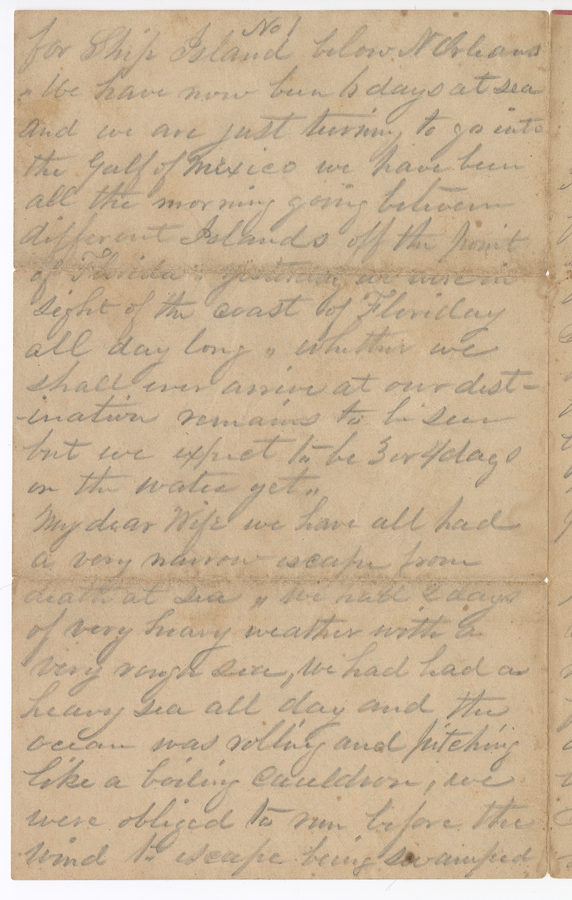 No 1
for Ship Island below N Orleans
" We have now been 6 days at sea
and we are just turning to go into
the Gulf of Mexico we have been
all the morning going between
different Islands off the point
of Florida " yesterday we were in
sight of the coast of Floriday
all day long " whether we
shall ever arrive at our dest-
-ination remains to be seen
but we expect to be 3 or 4 days
on the water yet "
My dear Wife we have all had
a very narrow escape from
death at sea " We had 2 days
of very heavy weather with a
very rough sea, We had had a
heavy sea all day and the
ocean was rolling and pitching
like a boiling cauldron, we
were obliged to run before the
wind to escape being swamped